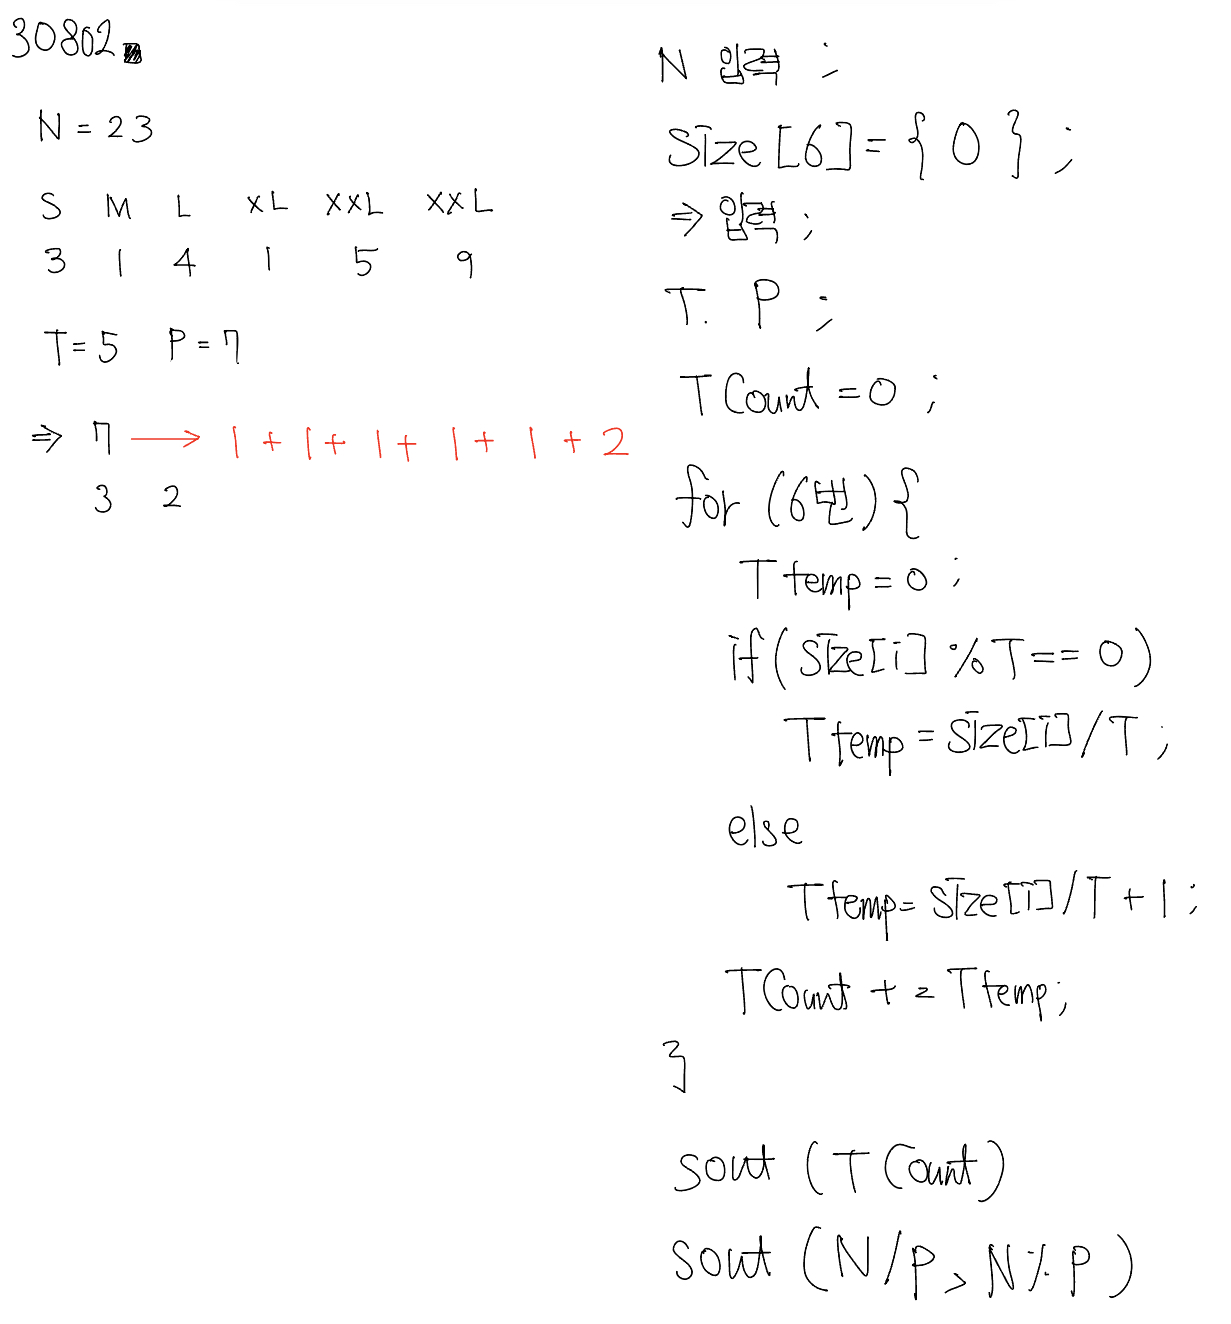 30802
N = 23
S M L XL XXL XXL
3 1 4 1 5 9
T = 5 P = 7
⇒ 7 → 1 + 1 + 1 + 1 + 1 + 2
3 2
N 입력 ;
Size [6] = { 0 } ;
⇒ 입력 ;
T. P ;
T Count = 0 ;
for (6번) {
T temp = 0 ;
if ( Size[i] % T == 0 )
T temp = Size[i] / T ;
else
T temp = Size[i] / T + 1 ;
T Count += T temp ;
}
sout ( T Count )
sout ( N / P , N % P )